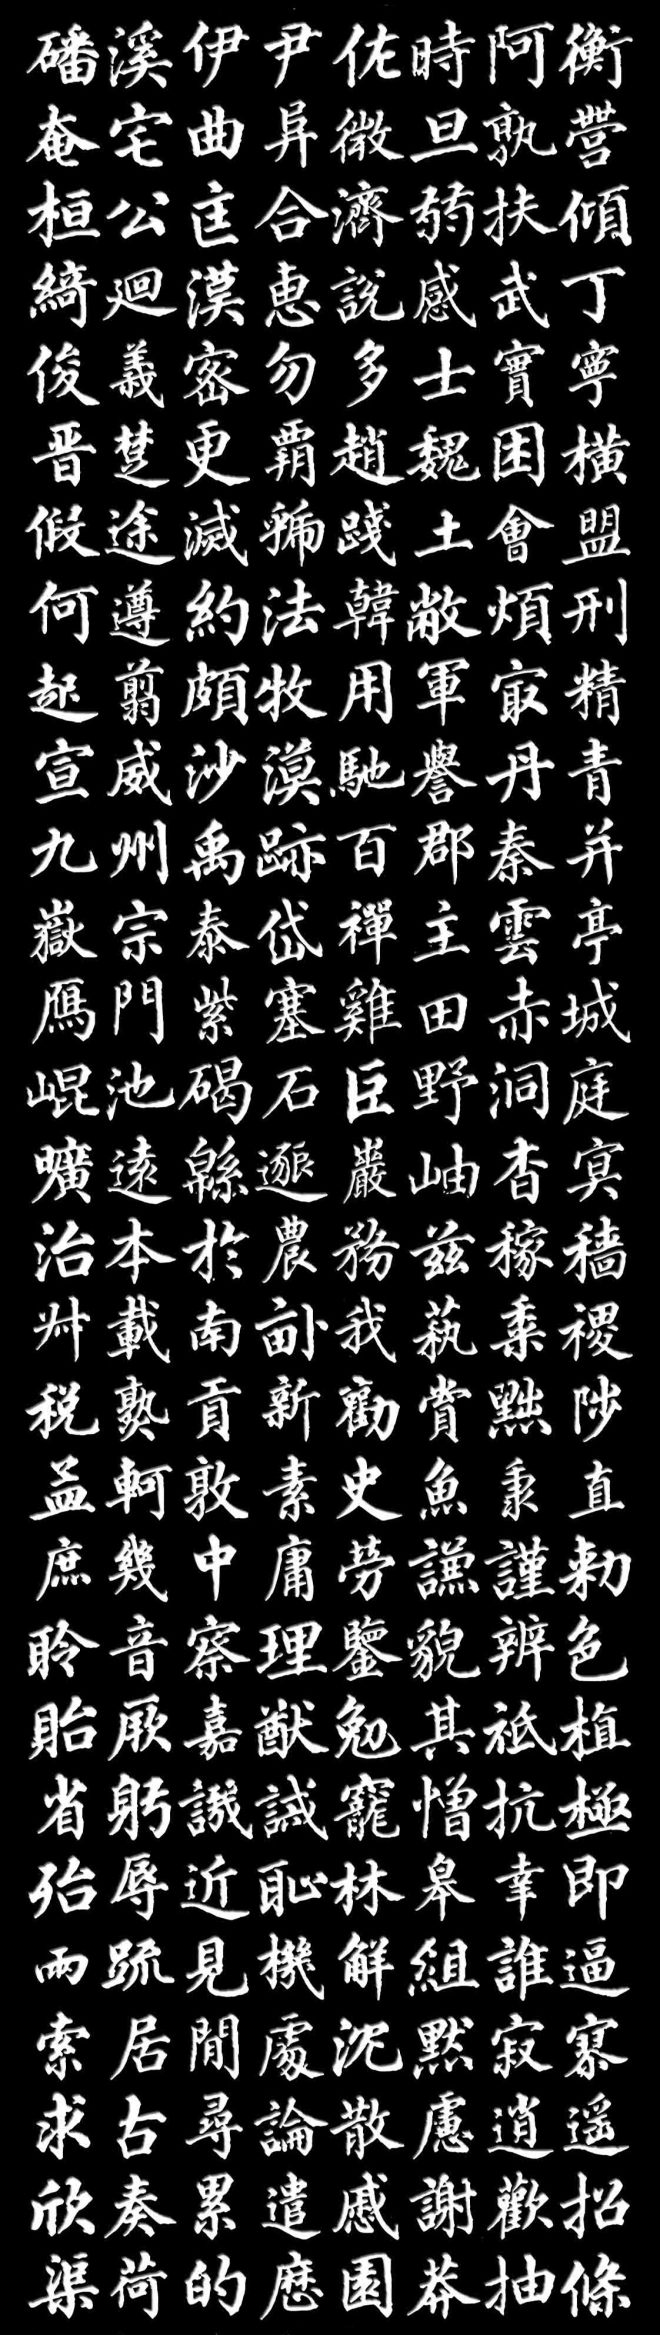 磻溪伊尹佐時阿衡
奄宅曲阜微旦孰營
桓公匡合濟弱扶傾
綺迴漢惠說感武丁
俊義密勿多士實寧
晉楚更霸趙魏困橫
假途滅虢踐土會盟
何遵約法韓敝煩刑
起翦頗牧用軍冣精
宣威沙漠馳譽丹青
九州禹跡百郡秦并
嶽宗泰岱禪主雲亭
鴈門紫塞雞田赤城
崐池碣石巨野洞庭
曠遠緜邈巖岫杳冥
治本於農務茲稼穡
俶載南畝我蓺黍稷
稅熟貢新勸賞黜陟
孟軻敦素史魚秉直
庶幾中庸勞謙謹勅
聆音察理鑒貌辨色
貽厥嘉猷勉其祗植
省躬譏誡寵憎抗極
殆辱近恥林皋幸即
兩疏見機解組誰逼
索居閒處沉默寂寥
求古尋論散慮逍遙
欣奏累遣慼謝歡招
渠荷的歷園莽抽條